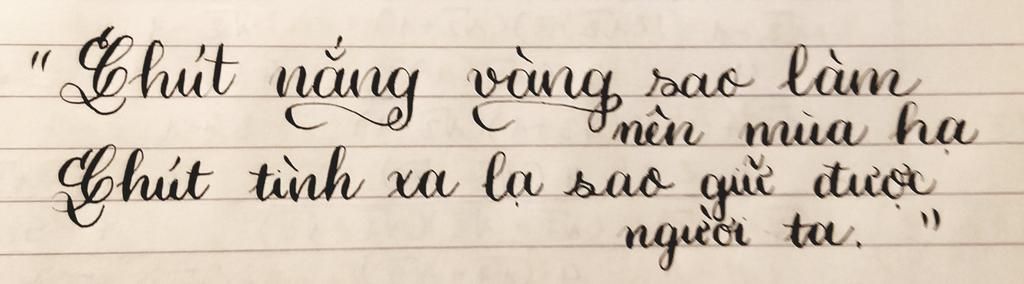 " Chút nắng vàng sao làm
nên mùa hạ
Chút tình xa lạ sao giữ được
người ta. "